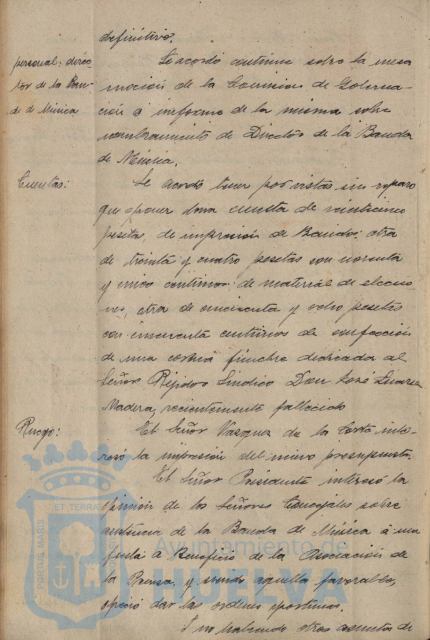 definitivo.
personal: direc-
tor de la Ban-
da de Música
Se acordó continue sobre la mesa
moción de la Comision de Goberna-
ción é informe de la misma sobre
nombramiento de Director de la Banda
de Música.
Cuentas:
Se acordó tener por vistas sin reparo
que oponer una cuenta de veinticinco
pesetas, de impresión de Bandos; otra
de treinta y cuatro pesetas con noventa
y cinco céntimos: de material de eleccio-
nes, otra de cincuenta y ocho pesetas
con cincuenta céntimos de confección
de una corona fúnebre dedicada al
Señor Rejidor Síndico Don José Suarez
Madera, recientemente fallecido
Ruego:
El Señor Vazquez de la Corte inte-
resó la impresión del nuevo presupuesto.
El Señor Presidente interesó la
opinión de los Señores Concejales sobre
asistencia de la Banda de Música á una
fiesta á Beneficio de la Asociación de
la Prensa, y siendo aquella favorable,
ofreció dar las ordenes oportunas.
Y no habiendo otros asuntos de
PORTUS MARIS ET TERRAE
Ayuntamiento de
HUELVA